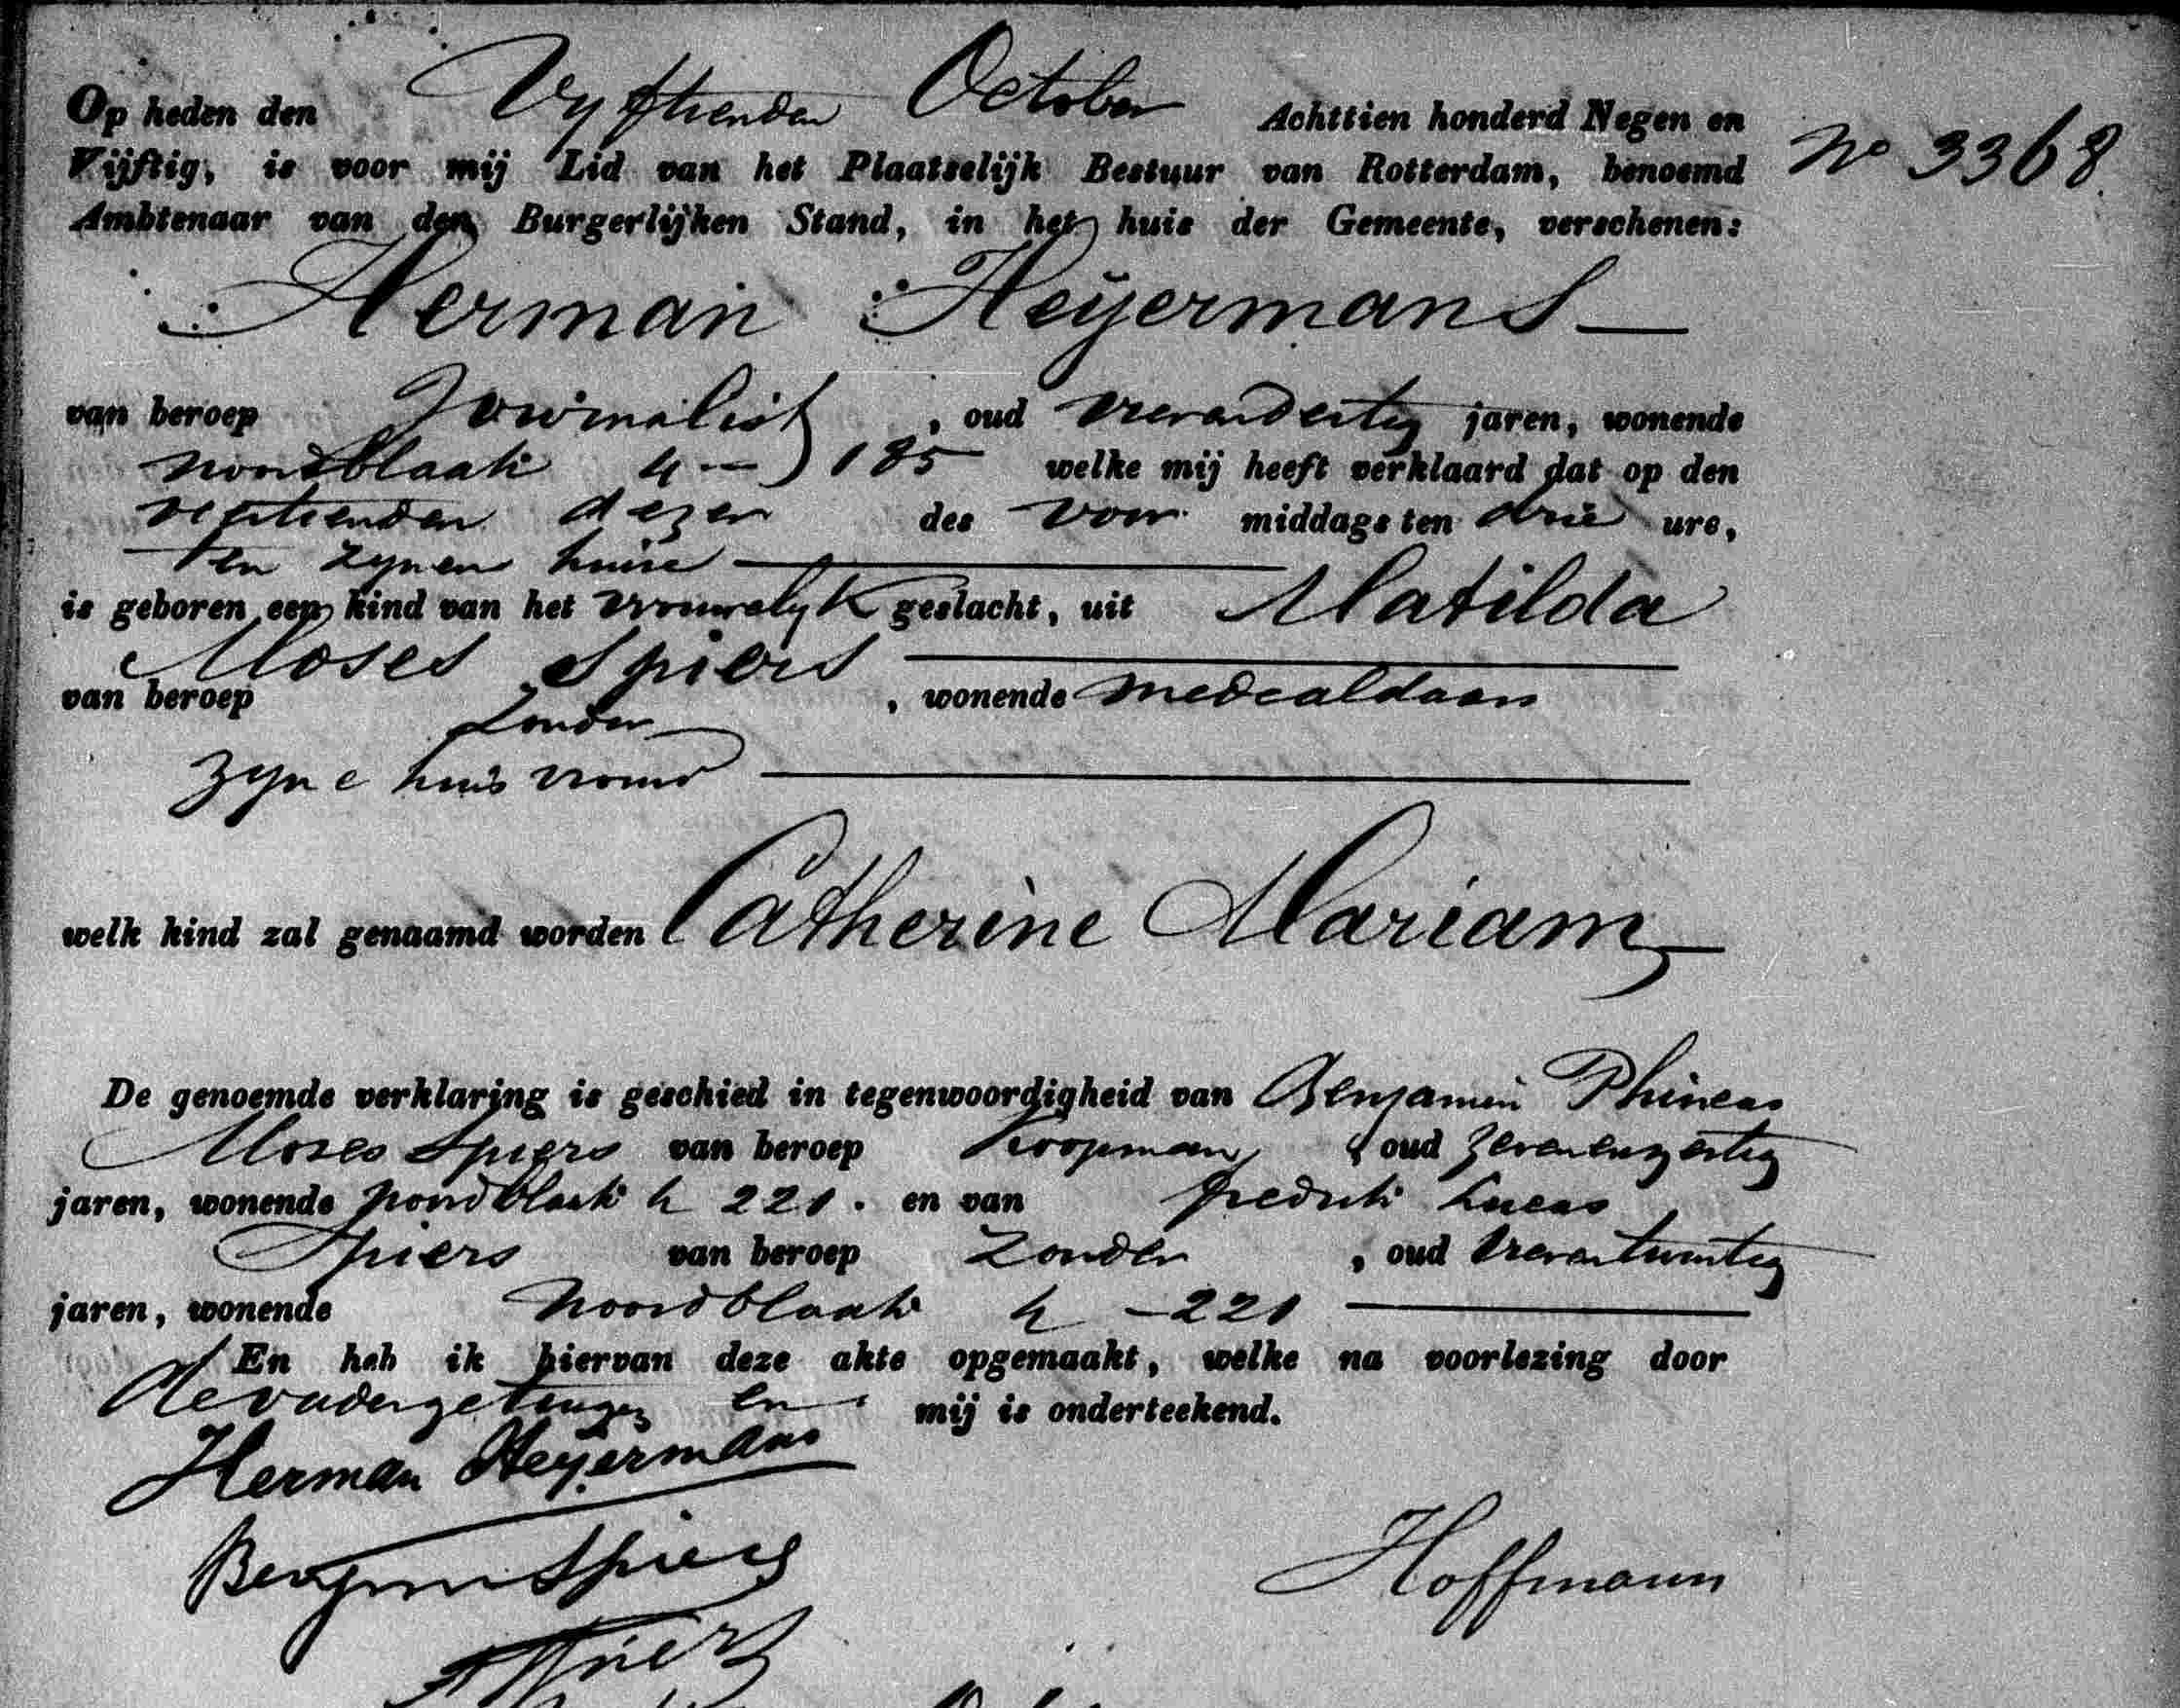 Op heden den Vyftienden October Achttien honderd Negen en
Vijftig, is voor mij Lid van het Plaatselijk Bestuur van Rotterdam, benoemd
No 3368.
Ambtenaar van den Burgerlijken Stand, in het huis der Gemeente, verschenen:
Herman Heyermans
van beroep Journalist, oud vierendertig jaren, wonende
noordblaak 4 185 welke mij heeft verklaard dat op den
veertienden dezer des voor middags ten drie ure,
ten zynen huise
is geboren een kind van het vrouwelyk geslacht, uit Matilda
Moses Spiers
van beroep zonder, wonende medealdaar
zyne huisvrouw
welk kind zal genaamd worden Catherine Mariam
De genoemde verklaring is geschied in tegenwoordigheid van Benjamin Phineas
Moses Spiers van beroep Koopman, oud zevenenzestig
jaren, wonende noordblaak 221. en van fredrik Lucas
Spiers van beroep zonder, oud vierentwintig
jaren, wonende noordblaak 221
En heb ik hiervan deze akte opgemaakt, welke na voorlezing door
de vader getuigen en mij is onderteekend.
Herman Heyermans
Spiers
Hoffmann
Spiers